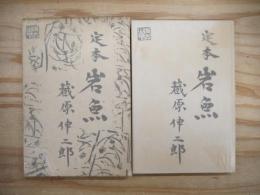 定本
岩魚
蔵原伸二郎
定本
岩魚
蔵原伸二郎